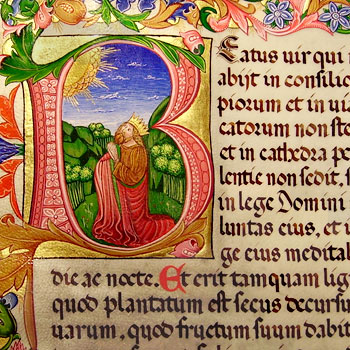 Beatus uir qui
abijt in consilio
piorum et in uia
catorum non ste
et in cathedra pe
lentie non sedit, s
in lege Domini
luntas eius, et i
ge eius meditab
die ac nocte. Et erit tamquam lig
quod plantatum est secus decursu
uarum, quod fructum suum dabit